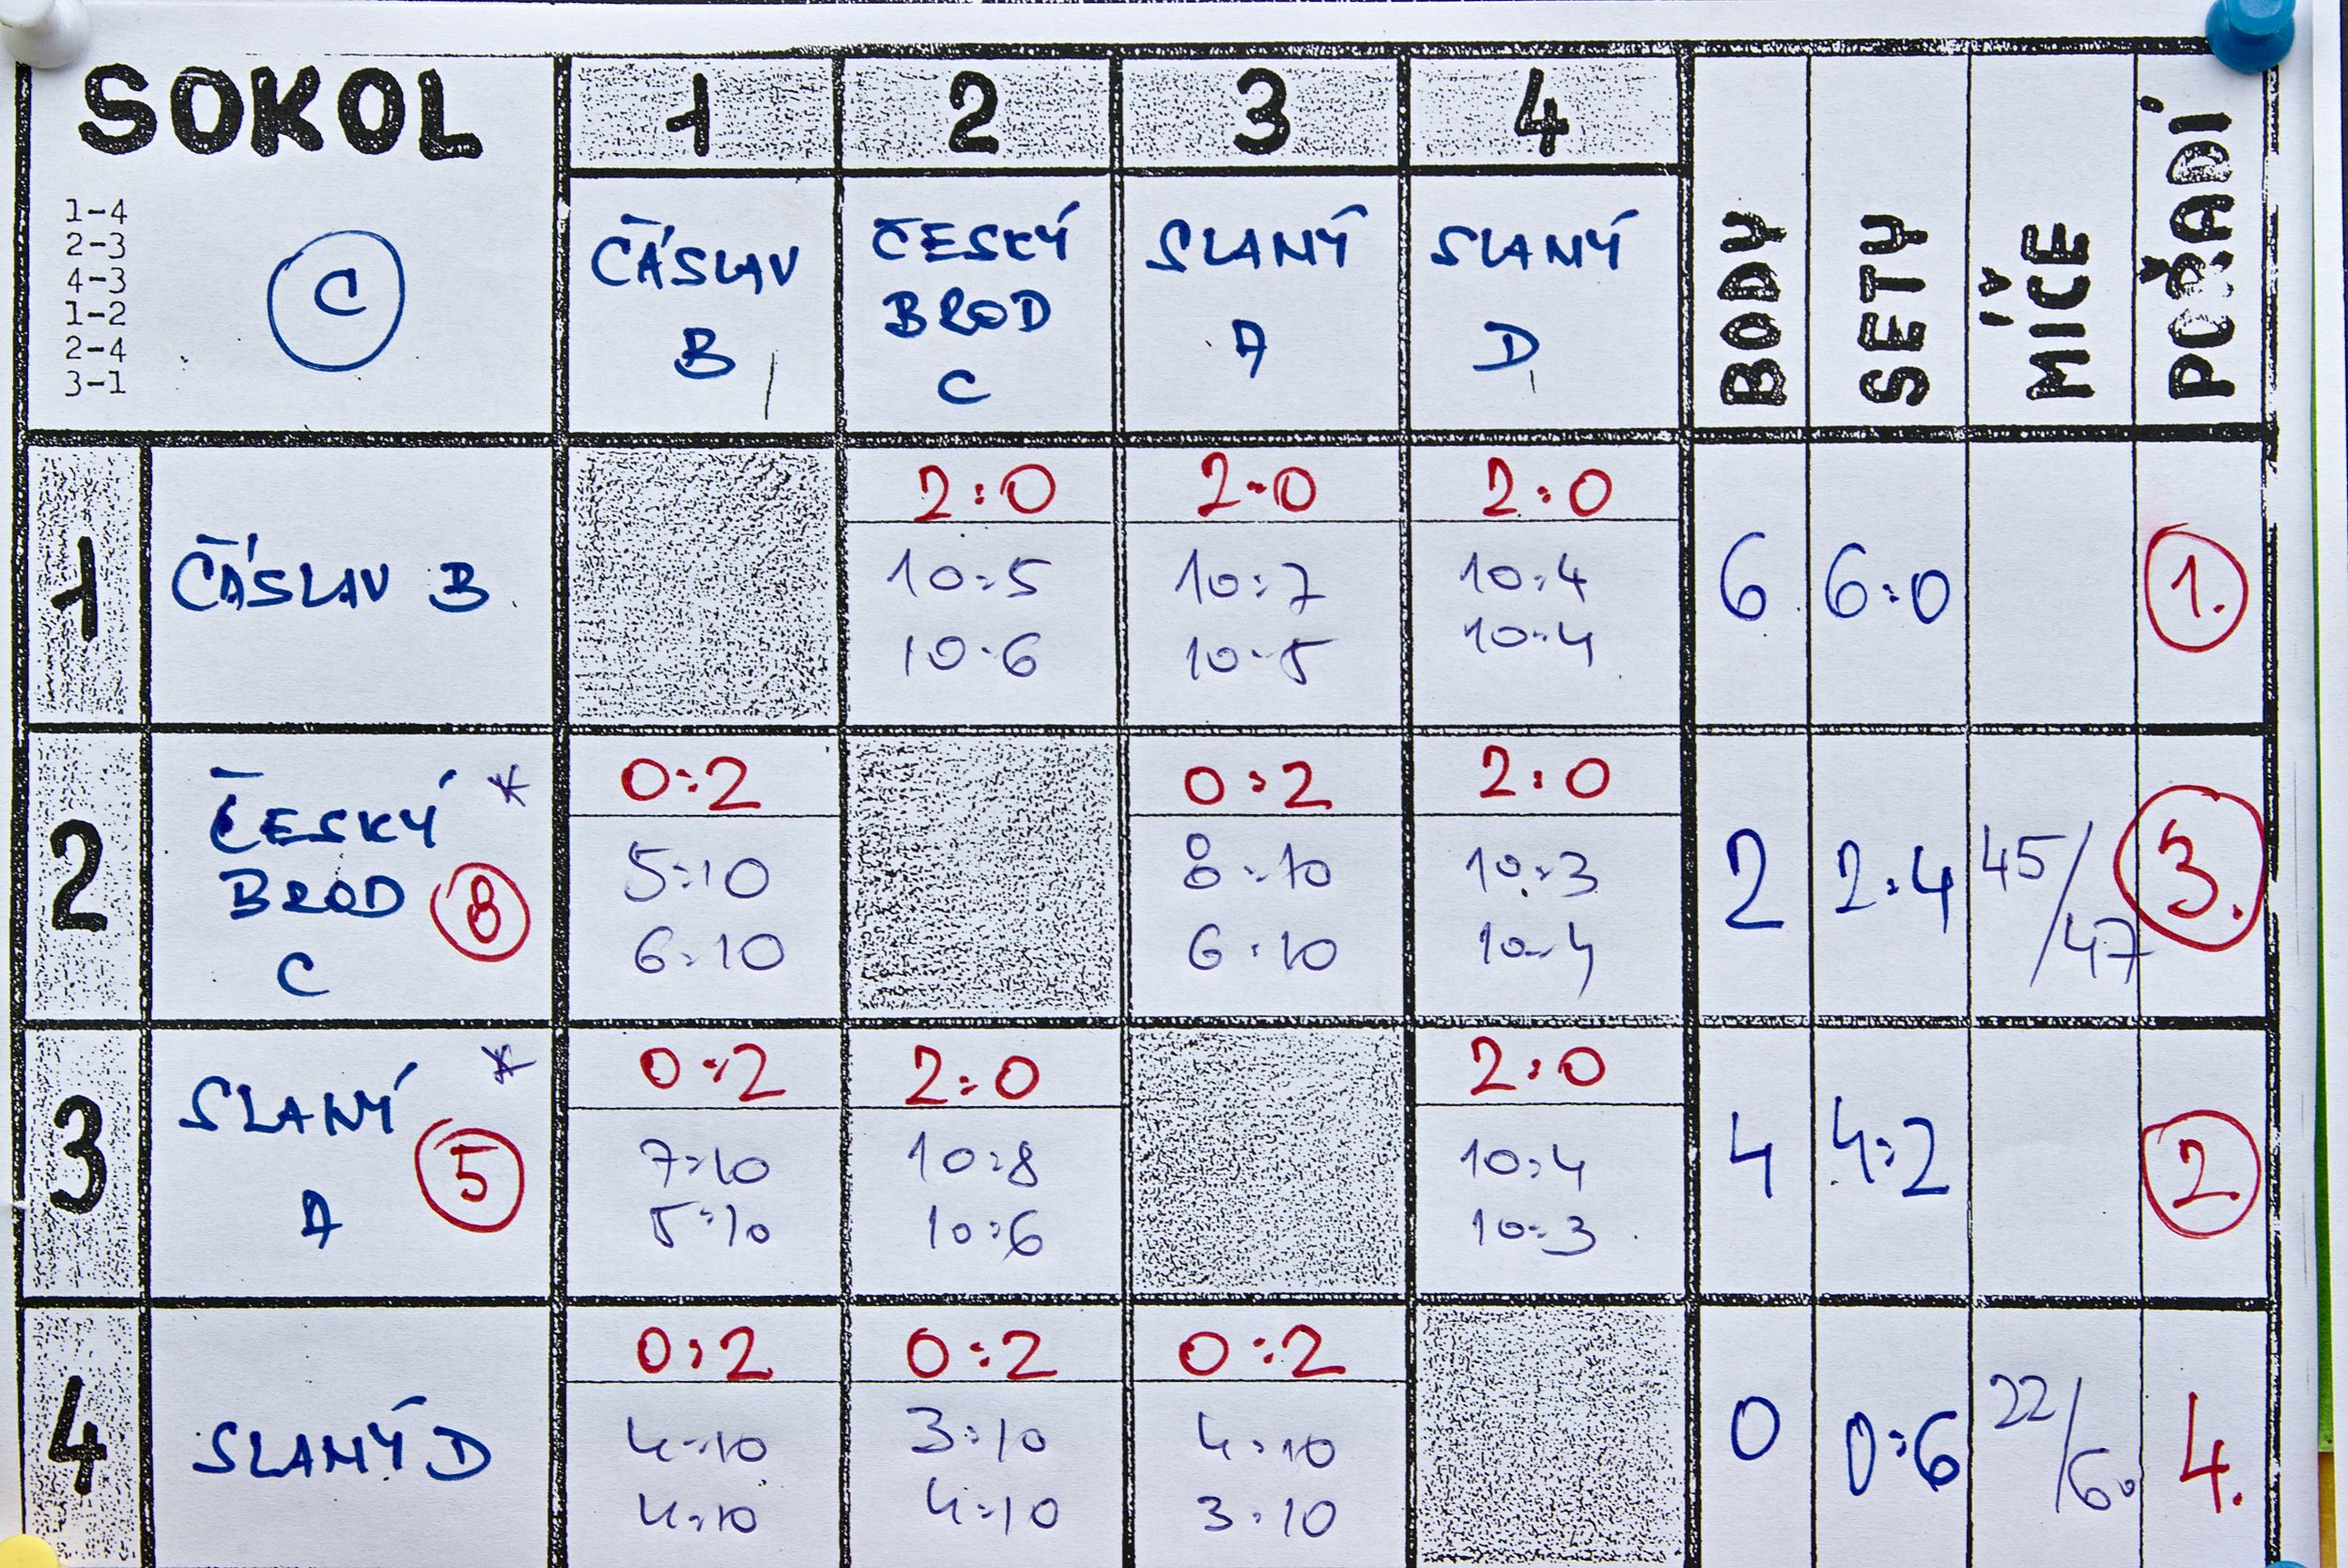 SOKOL 1 2 3 4 BODY SETY MÍČE POŘADÍ
1-4
2-3
4-3
1-2
2-4
3-1
C
ČÁSLAV B
ČESKÝ BROD C
SLANÝ A
SLANÝ D
1 ČÁSLAV B 2:0 2:0 2:0 6 6:0 1.
10:5 10:7 10:4
10:6 10:5 10:4
2 ČESKÝ * BROD 8 C 0:2 0:2 2:0 2 2:4 45/47 3.
5:10 8:10 10:3
6:10 6:10 10:4
3 SLANÝ * A 5 0:2 2:0 2:0 4 4:2 2.
7:10 10:8 10:4
5:10 10:6 10:3
4 SLANÝ D 0:2 0:2 0:2 0 0:6 22/60 4.
4:10 3:10 4:10
4:10 4:10 3:10